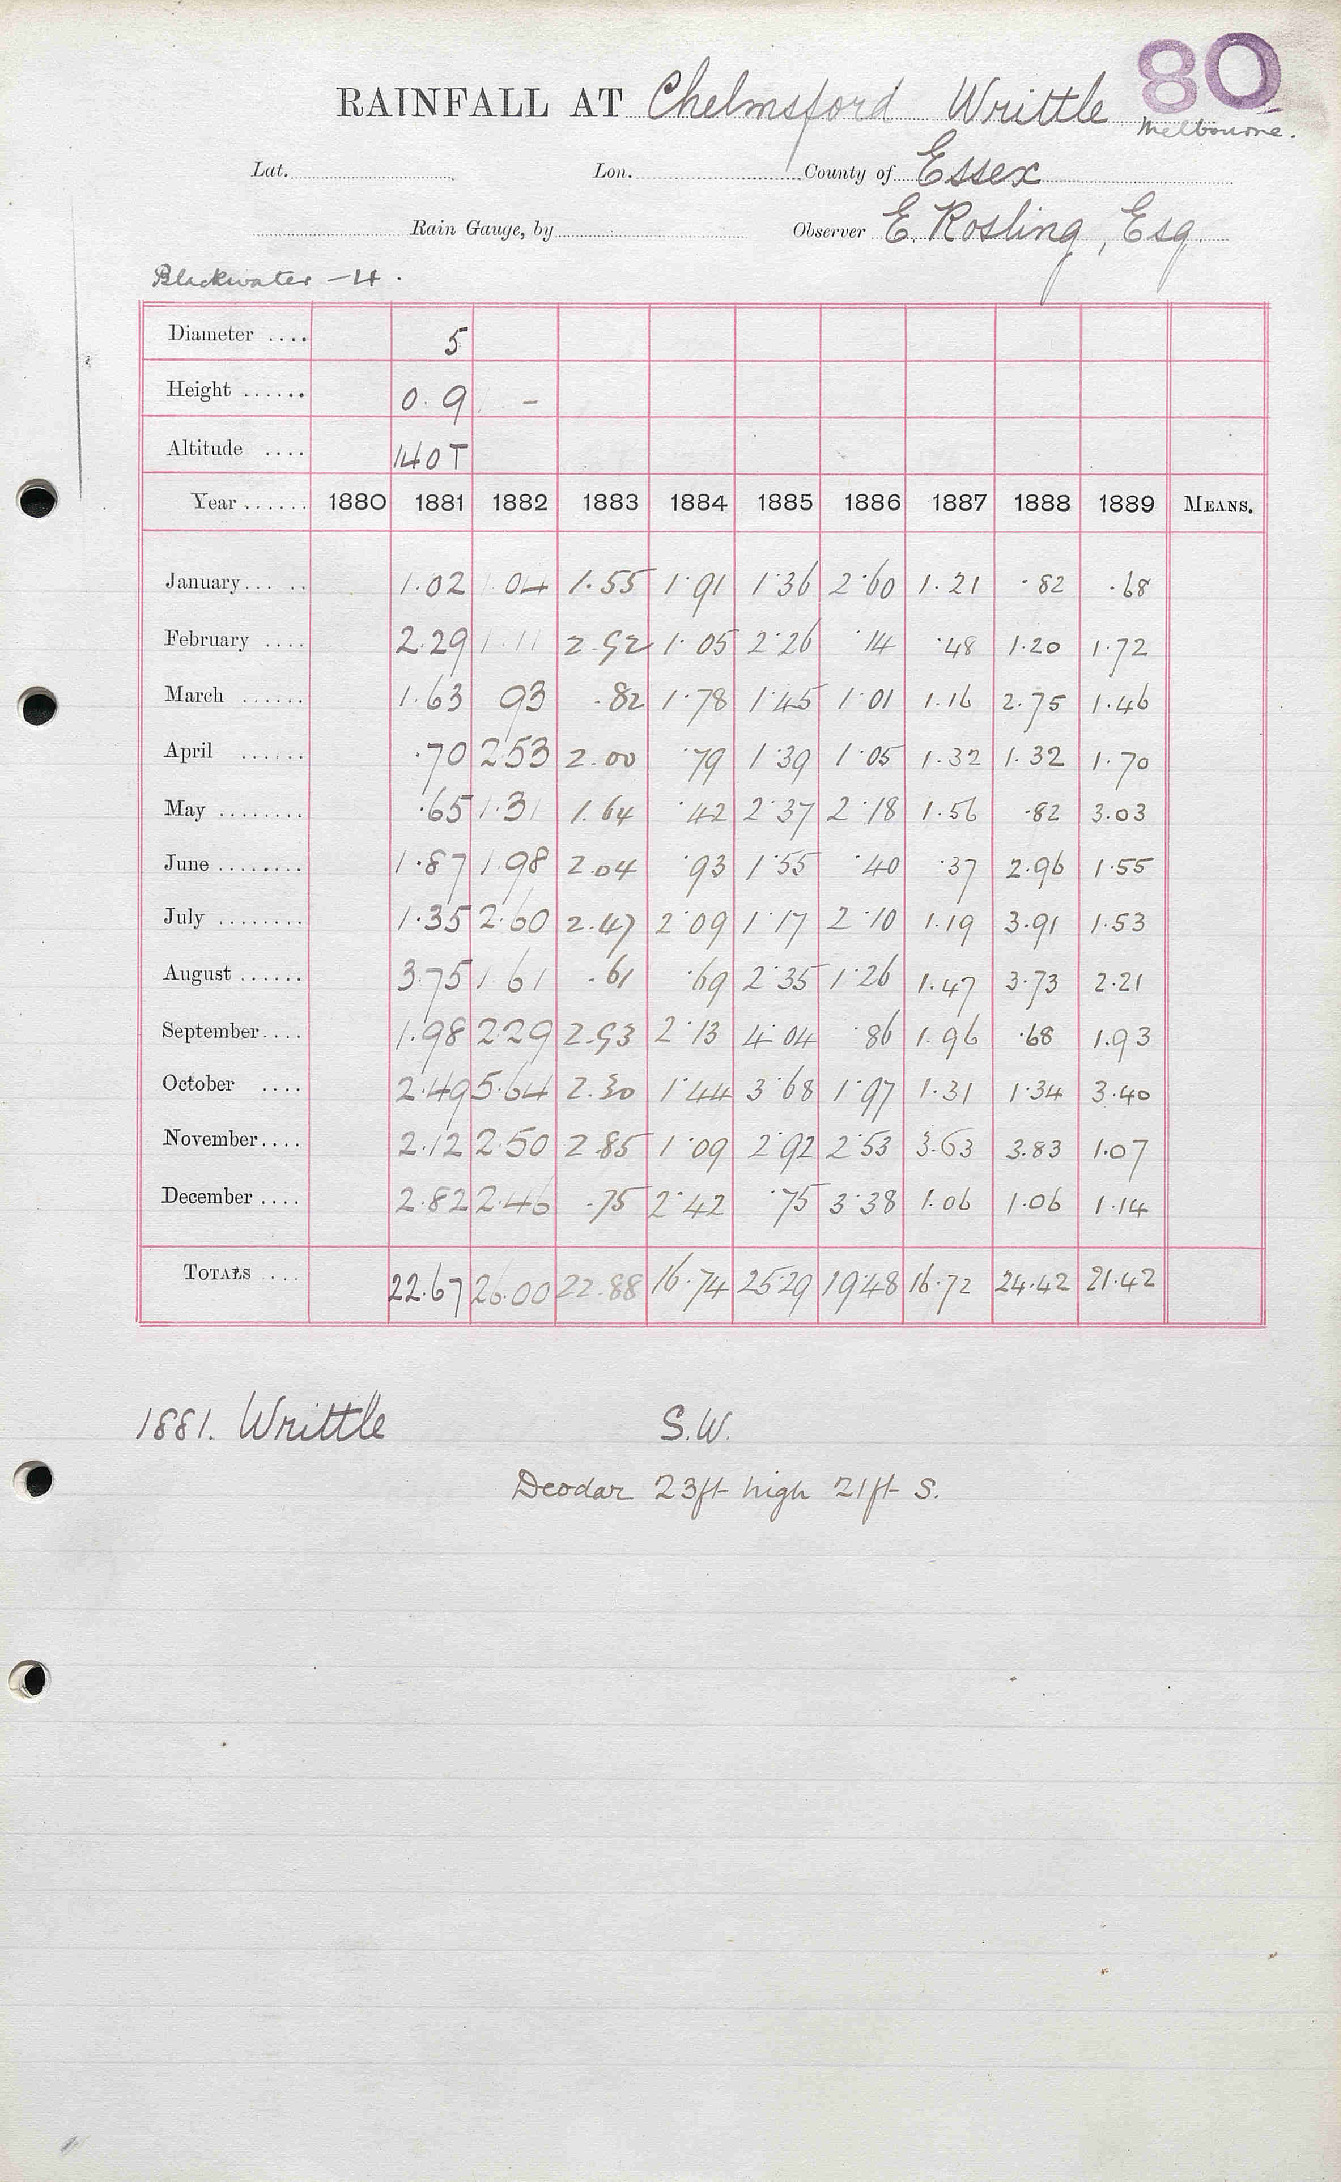 80
RAINFALL AT Chelmsford Writtle
Melbourne.
Lat. Lon. County of Essex
Rain Gauge, by Observer E. Rosling, Esq.
Blackwater - 4.
Diameter .... 5
Height ...... 0. 9 -
Altitude .... 140 T
Year ...... 1880 1881 1882 1883 1884 1885 1886 1887 1888 1889 MEANS.
January ... .. 1.02 1.04 1.55 1.91 1.36 2.60 1.21 .82 .68
February .... 2.29 1.11 2.92 1.05 2.26 .14 .48 1.20 1.72
March ...... 1.63 93 .82 1.78 1.45 1.01 1.16 2.75 1.46
April ...... .70 2.53 2.00 .79 1.39 1.05 1.32 1.32 1.70
May ........ .65 1.31 1.64 .42 2.37 2.18 1.56 .82 3.03
June ........ 1.87 1.98 2.04 .93 1.55 .40 .37 2.96 1.55
July ........ 1.35 2.60 2.47 2.09 1.17 2.10 1.19 3.91 1.53
August ...... 3.75 1.61 .61 .69 2.35 1.26 1.47 3.73 2.21
September .... 1.98 2.29 2.93 2.13 4.04 .86 1.96 .68 1.93
October .... 2.49 5.64 2.30 1.44 3.68 1.97 1.31 1.34 3.40
November .... 2.12 2.50 2.85 1.09 2.92 2.53 3.63 3.83 1.07
December .... 2.82 2.46 .75 2.42 .75 3.38 1.06 1.06 1.14
TOTALS ... 22.67 26.00 22.88 16.74 25.29 19.48 16.72 24.42 21.42
1881. Writtle S.W.
Deodar 23ft high 21ft S.